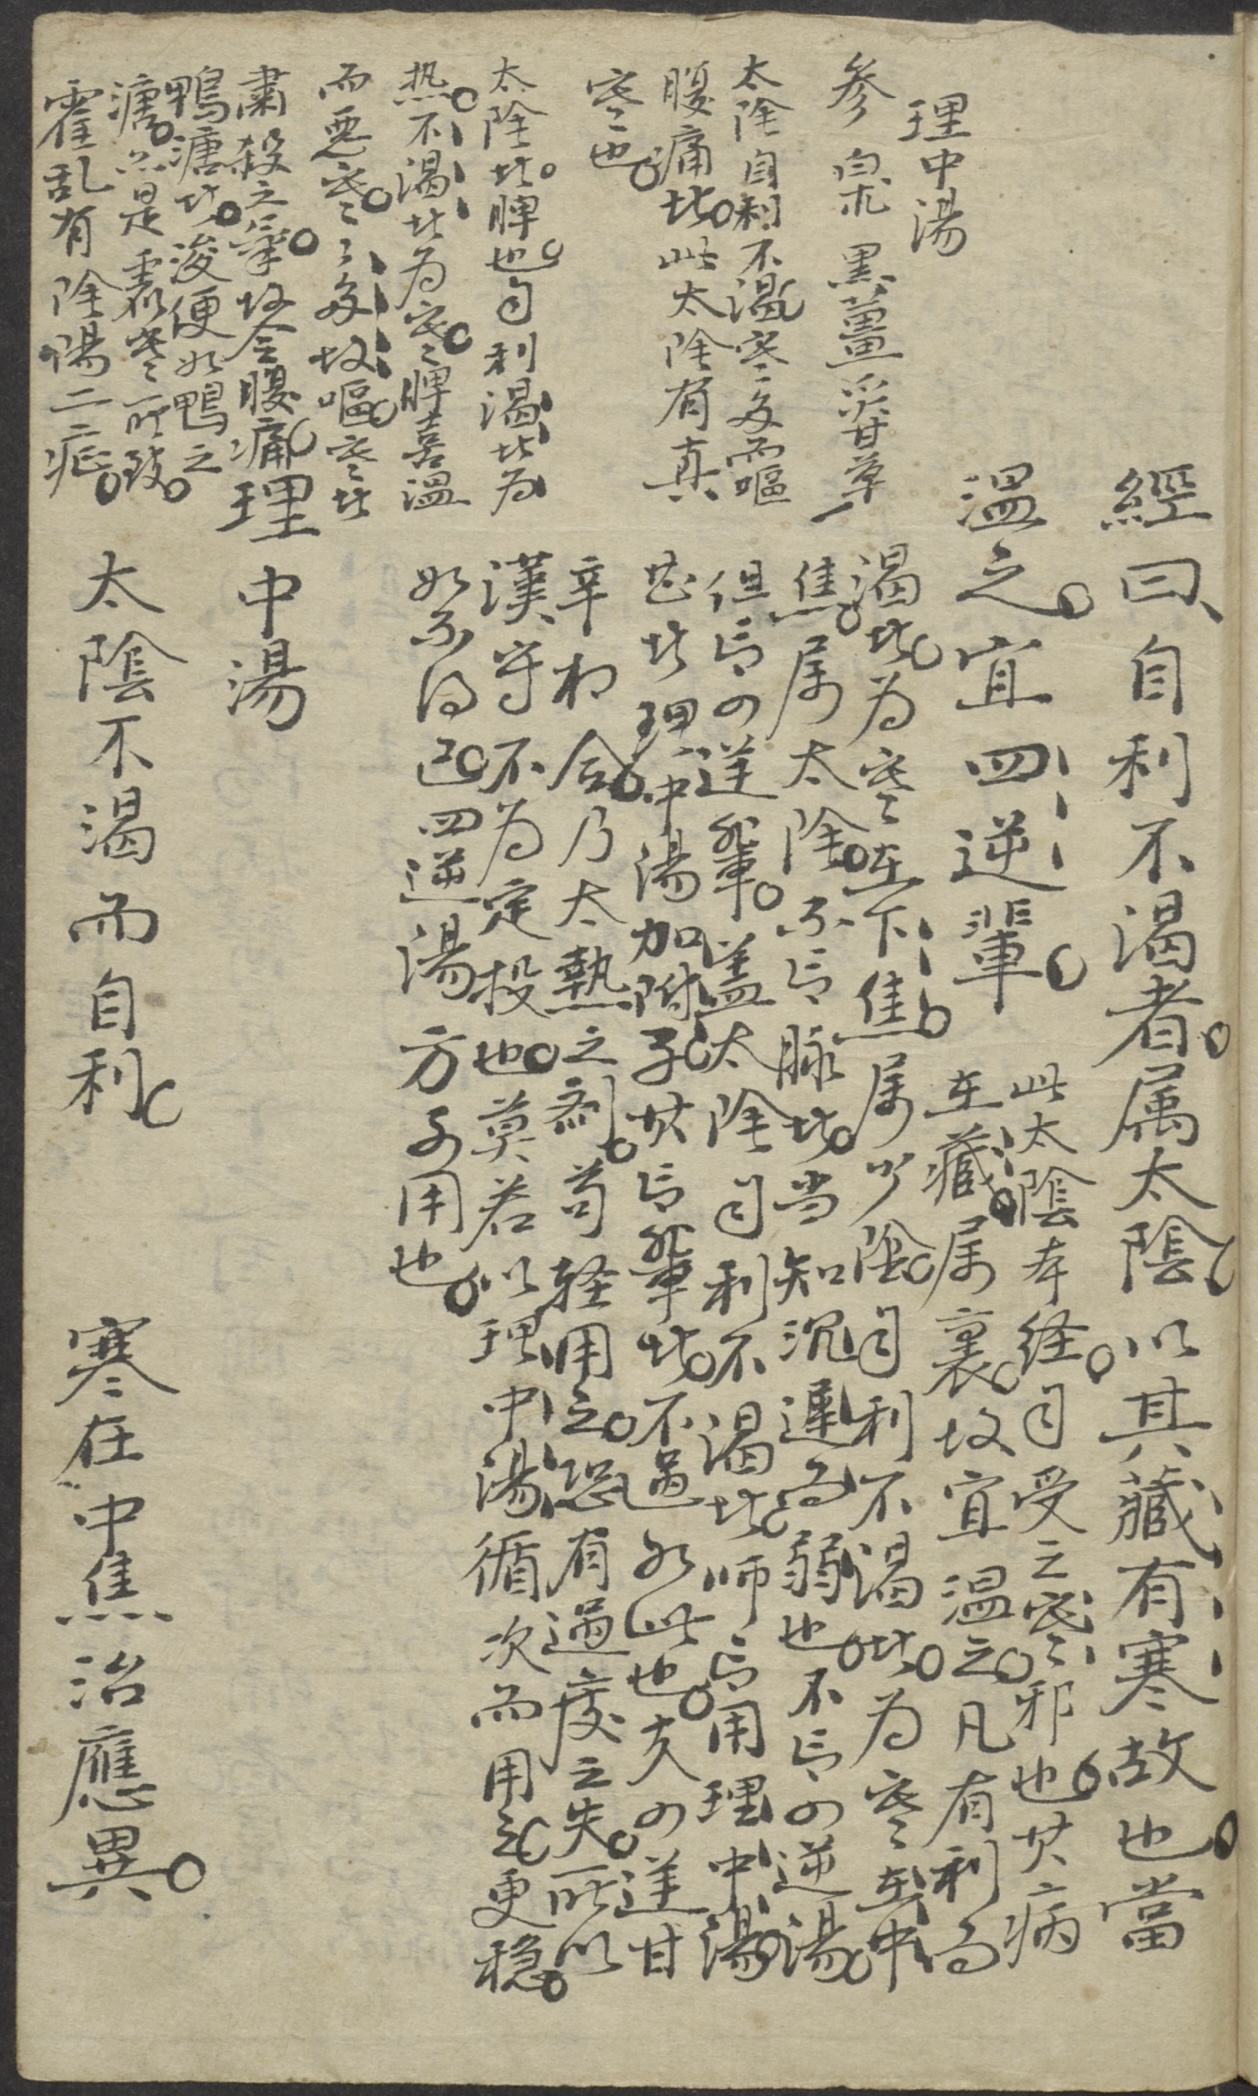 經曰自利不渴者属太陰以其藏有寒故也當
温之宜四逆輩
此太陰本経自受之寒邪也其病
在藏属裏故宜温之凡有利而
渴者为寒在下焦属少陰自利不渴者为寒在中
焦属太陰不言脉者当知沉遲而弱也不言四逆湯
但言四逆輩盖太陰自利不渴者师言用理中湯
甚者理中湯加附子其言輩者不過如此也夫四逆甘
辛相合乃大熱之剤苟軽用之恐有過度之失所以
漢守不为定投也莫若以理中湯循次而用之更穏
如不得已四逆湯方可用也
理中湯
太陰不渴而自利
寒在中焦治應異
理中湯
参 白朮 黒薑 炙甘草
太陰自利不渴寒多而嘔
腹痛者此太陰有真
寒也
太陰者脾也自利渴者为
热不渴者为寒脾喜温
而悪寒寒多故嘔寒者
肅殺之氣故令腹痛
鴨溏者後便如鴨之
溏亦是虚寒所致
霍乱有陰陽二症